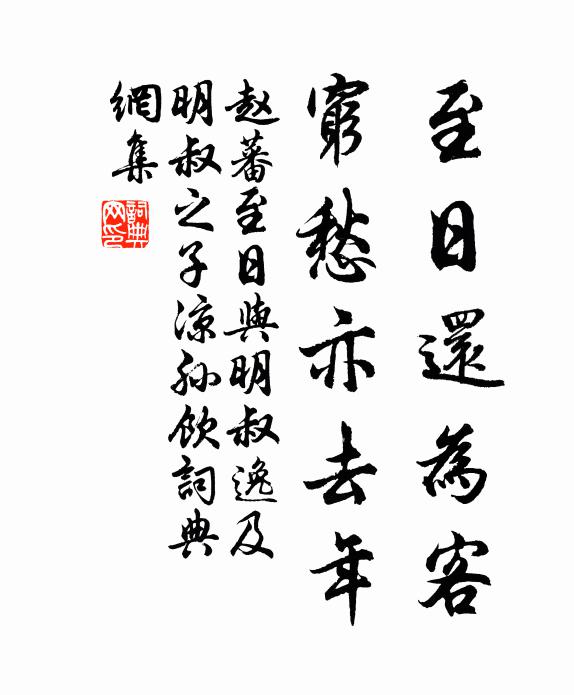 至日還為客
窮愁亦去年
赵蕃至日與明叔逸及
明叔之子涼孙飲詞典
網集
詞典网印